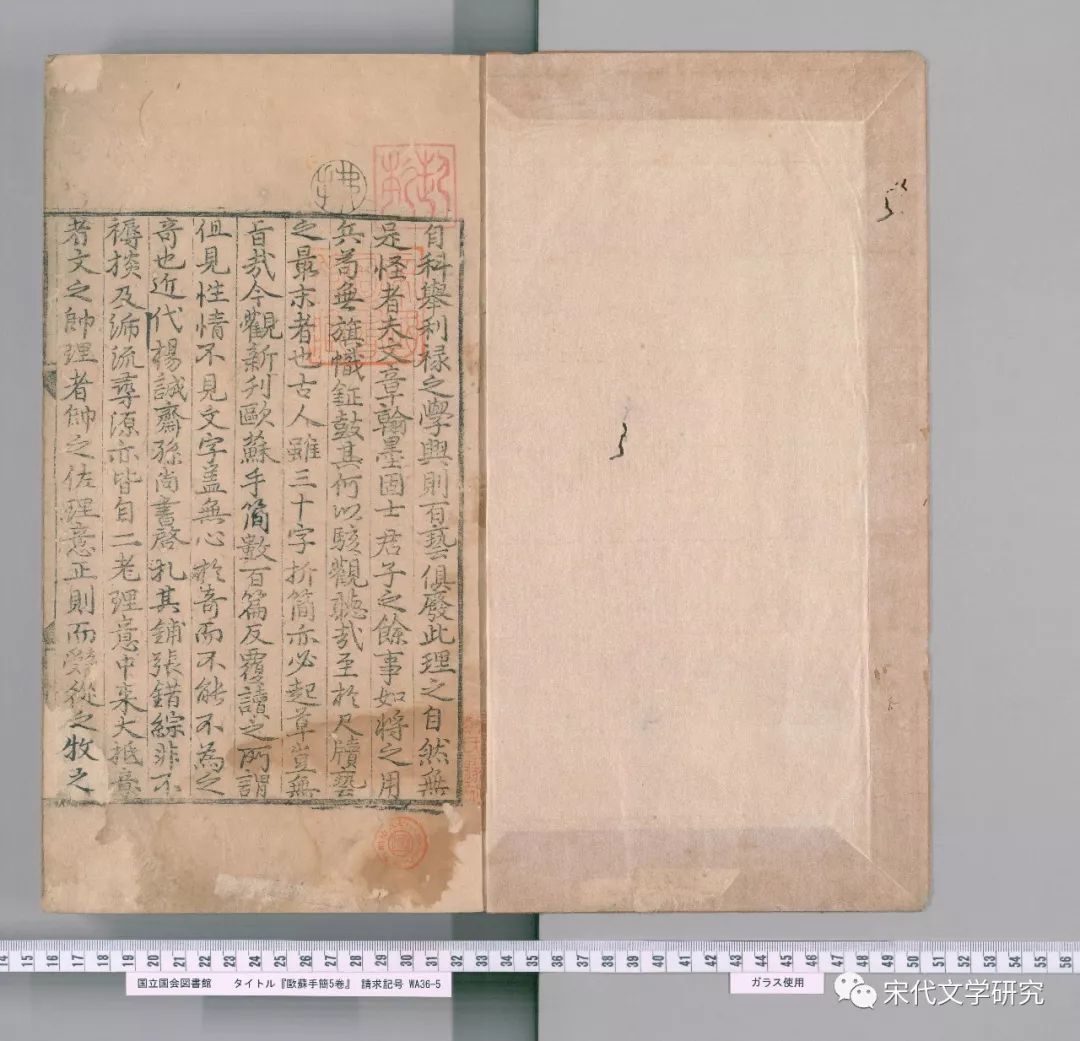 自科舉利祿之學興則百藝俱廢此理之自然無
是怪者夫文章翰墨固士君子之餘事如將之用
兵苟無旗幟鉦鼓其何以駭觀聽哉至於尺牘藝
之最末者也古人雖三十字折簡亦必起草豈無
旨哉今觀新刋歐蘇手簡數百篇反覆讀之所謂
但見性情不見文字盖無心於奇而不能不為之
奇也近代楊誠齋孫尚書啓札其鋪張錯綜非不
褥掞及泝流尋源亦皆自二老理意中来大抵意
者文之帥理者帥之佐理意正則而辤從之牧之
国立国会図書館 タイトル『歐蘇手簡5巻』 請求記号 WA36-5
ガラス使用
14 15 16 17 18 19 20 21 22 23 24 25 26 27 28 29 30 31 32 33 34 35 36 37 38 39 40 41 42 43 44 45 46 47 48 49 50 51 52 53 54 55 56
宋代文学研究